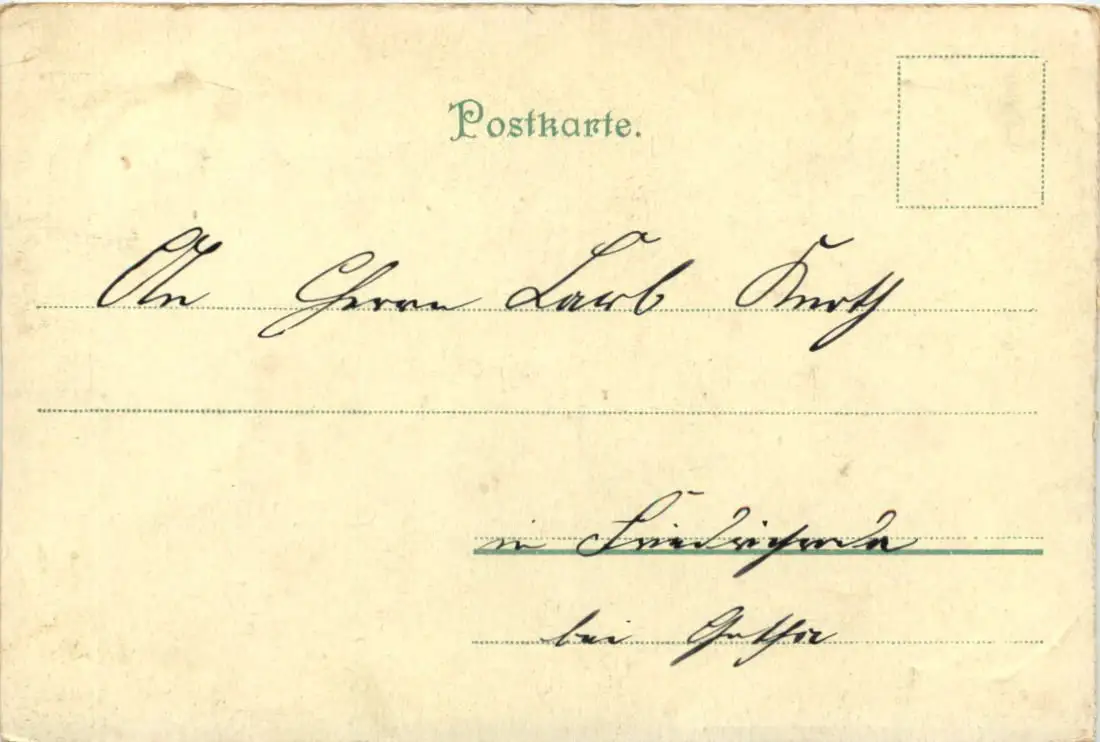 Postkarte.
An Herrn Kurth
in Friedrichroda
bei Gotha